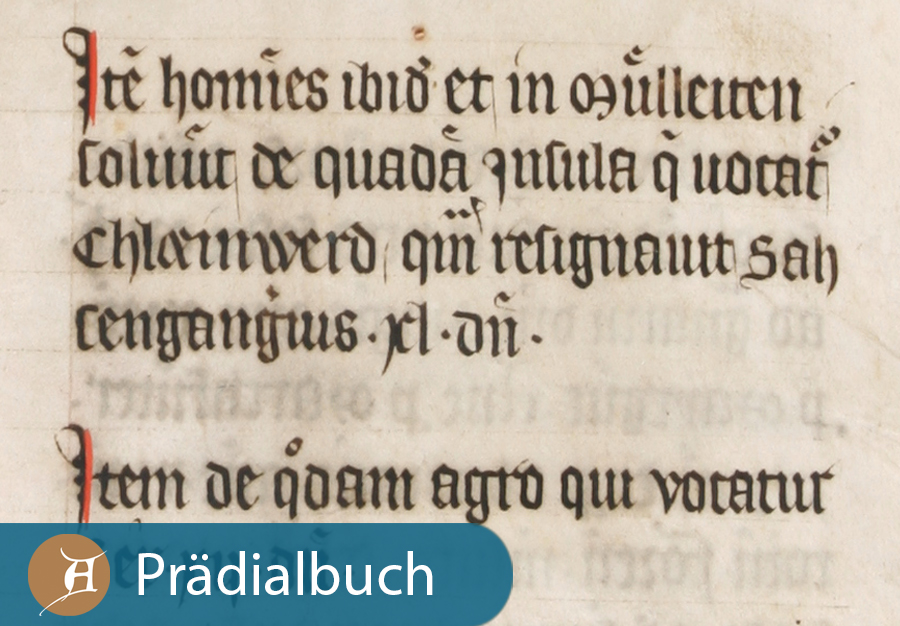 Itē homīes ibid' et in Mūlleiten
soluūt de quadā Insula q̄ uocat᷑
Chlæinwerd qm̄ resignauit Sah
sengang̓ius · xl · dn̄ ·
Item de qͦdam agro qui vocatur
A Prädialbuch